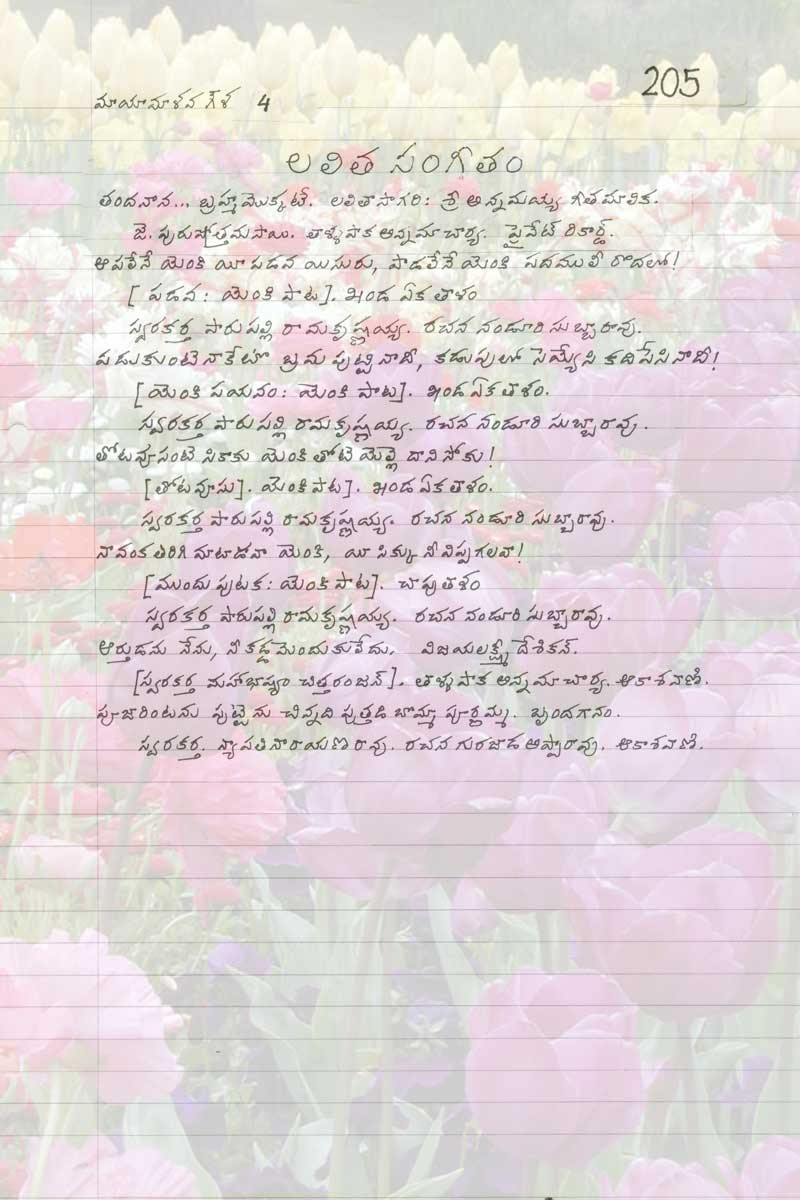 205
మాయామాళవగౌళ 4
లలిత సంగీతం
తందనాన... బ్రహ్మమొక్కటే. లలితాసాగరి: శ్రీ అన్నమయ్య గీతమాలిక.
జె. పురుషోత్తమసాయి. తాళ్ళపాక అన్నమాచార్య. ప్రైవేట్ రికార్డ్.
ఆపలేనే యెంకి యీ పడవ యిసురు, పాడలేనే యెంకి పదములీ రొదలో!
[పడవ: యెంకి పాట]. ఖండ ఏక తాళం
స్వరకర్త పారుపల్లి రామకృష్ణయ్య. రచన నండూరి సుబ్బారావు.
పడుకుంటె నాకేటొ బ్రమ పుట్టినాదీ, కడుపులో సెయ్యేసి కదిపేసినాదీ!
[యెంకి పయనం: యెంకి పాట]. ఖండ ఏక తాళం.
స్వరకర్త పారుపల్లి రామకృష్ణయ్య. రచన నండూరి సుబ్బారావు.
తోటవూసంటె సికాకు యెంకి తోటె యెల్లె దాని సోకు!
[తోటవూసు]. యెంకి పాట]. ఖండ ఏక తాళం.
స్వరకర్త పారుపల్లి రామకృష్ణయ్య. రచన నండూరి సుబ్బారావు.
నావంక తిరిగి మాటాడవా యెంకి, యీ సిక్కు నీ విప్పగలవా!
[ముందు పుటక: యెంకి పాట]. చాపు తాళం
స్వరకర్త పారుపల్లి రామకృష్ణయ్య. రచన నండూరి సుబ్బారావు.
ఆర్తుడను నేను, నీ కడ్డమెందుకులేదు. విజయలక్ష్మీ దేశికన్.
[స్వరకర్త మహాభాష్యం చిత్తరంజన్]. తాళ్ళపాక అన్నమాచార్య. ఆకాశవాణి.
పూజారింటను పుట్టెను చిన్నది పుత్తడి బొమ్మా పూర్ణమ్మ. బృందగానం.
స్వరకర్త. న్యాపతి నారాయణరావు. రచన గురజాడ అప్పారావు. ఆకాశవాణి.